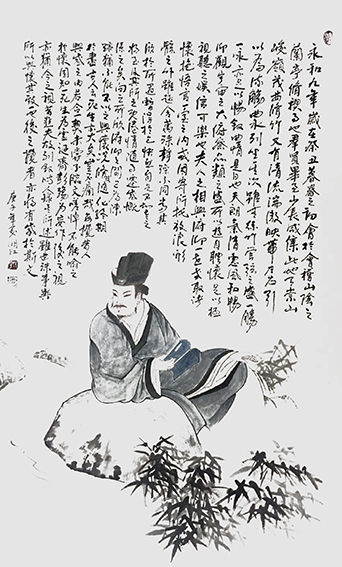 永和九年歲在癸丑暮春之初會於會稽山陰之
蘭亭脩禊事也羣賢畢至少長咸集此地有崇山
峻嶺茂林脩竹又有清流激湍映帶左右引
以為流觴曲水列坐其次雖無絲竹管弦之盛一觴
一詠亦足以暢敘幽情是日也天朗氣清惠風和暢
仰觀宇宙之大俯察品類之盛所以遊目騁懷足以極
視聽之娛信可樂也夫人之相與俯仰一世或取諸
懷抱悟言一室之內或因寄所託放浪形
骸之外雖趣舍萬殊靜躁不同當其
欣於所遇暫得於己快然自足不知老之
將至及其所之既倦情隨事遷感慨
係之矣向之所欣俯仰之間已為陳
跡猶不能不以之興懷況脩短隨化終期
於盡古人云死生亦大矣豈不痛哉每攬昔人
興感之由若合一契未嘗不臨文嗟悼不能喻之
於懷固知一死生為虛誕齊彭殤為妄作後之視今
亦猶今之視昔悲夫故列敘時人錄其所述雖世殊事異
所以興懷其致一也後之攬者亦將有感於斯文